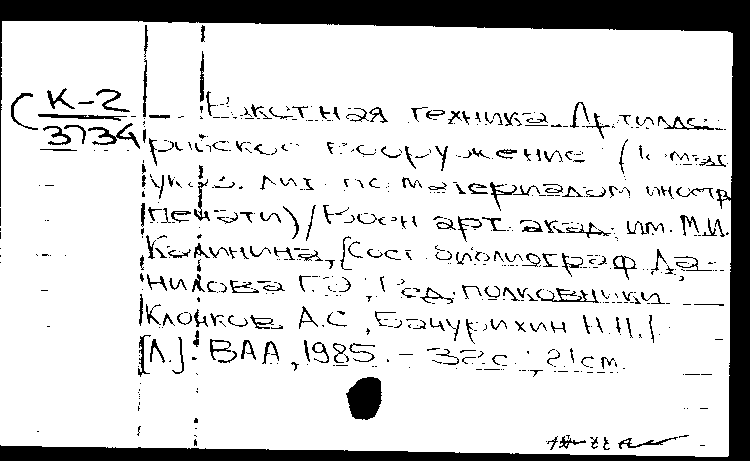 К-2
3734
Ракетная техника. Артилле-
рийское вооружение (Темат
указ. лит. по материалам иностр
печати) / Воен арт. акад. им. М.И.
Калинина, [Сост. библиограф Да-
нилова Г.Э, Ред. полковники
Клочков А.С, Бачурихин Н.П.]
[Л.]: ВАА, 1985. - 32с.; 21см.